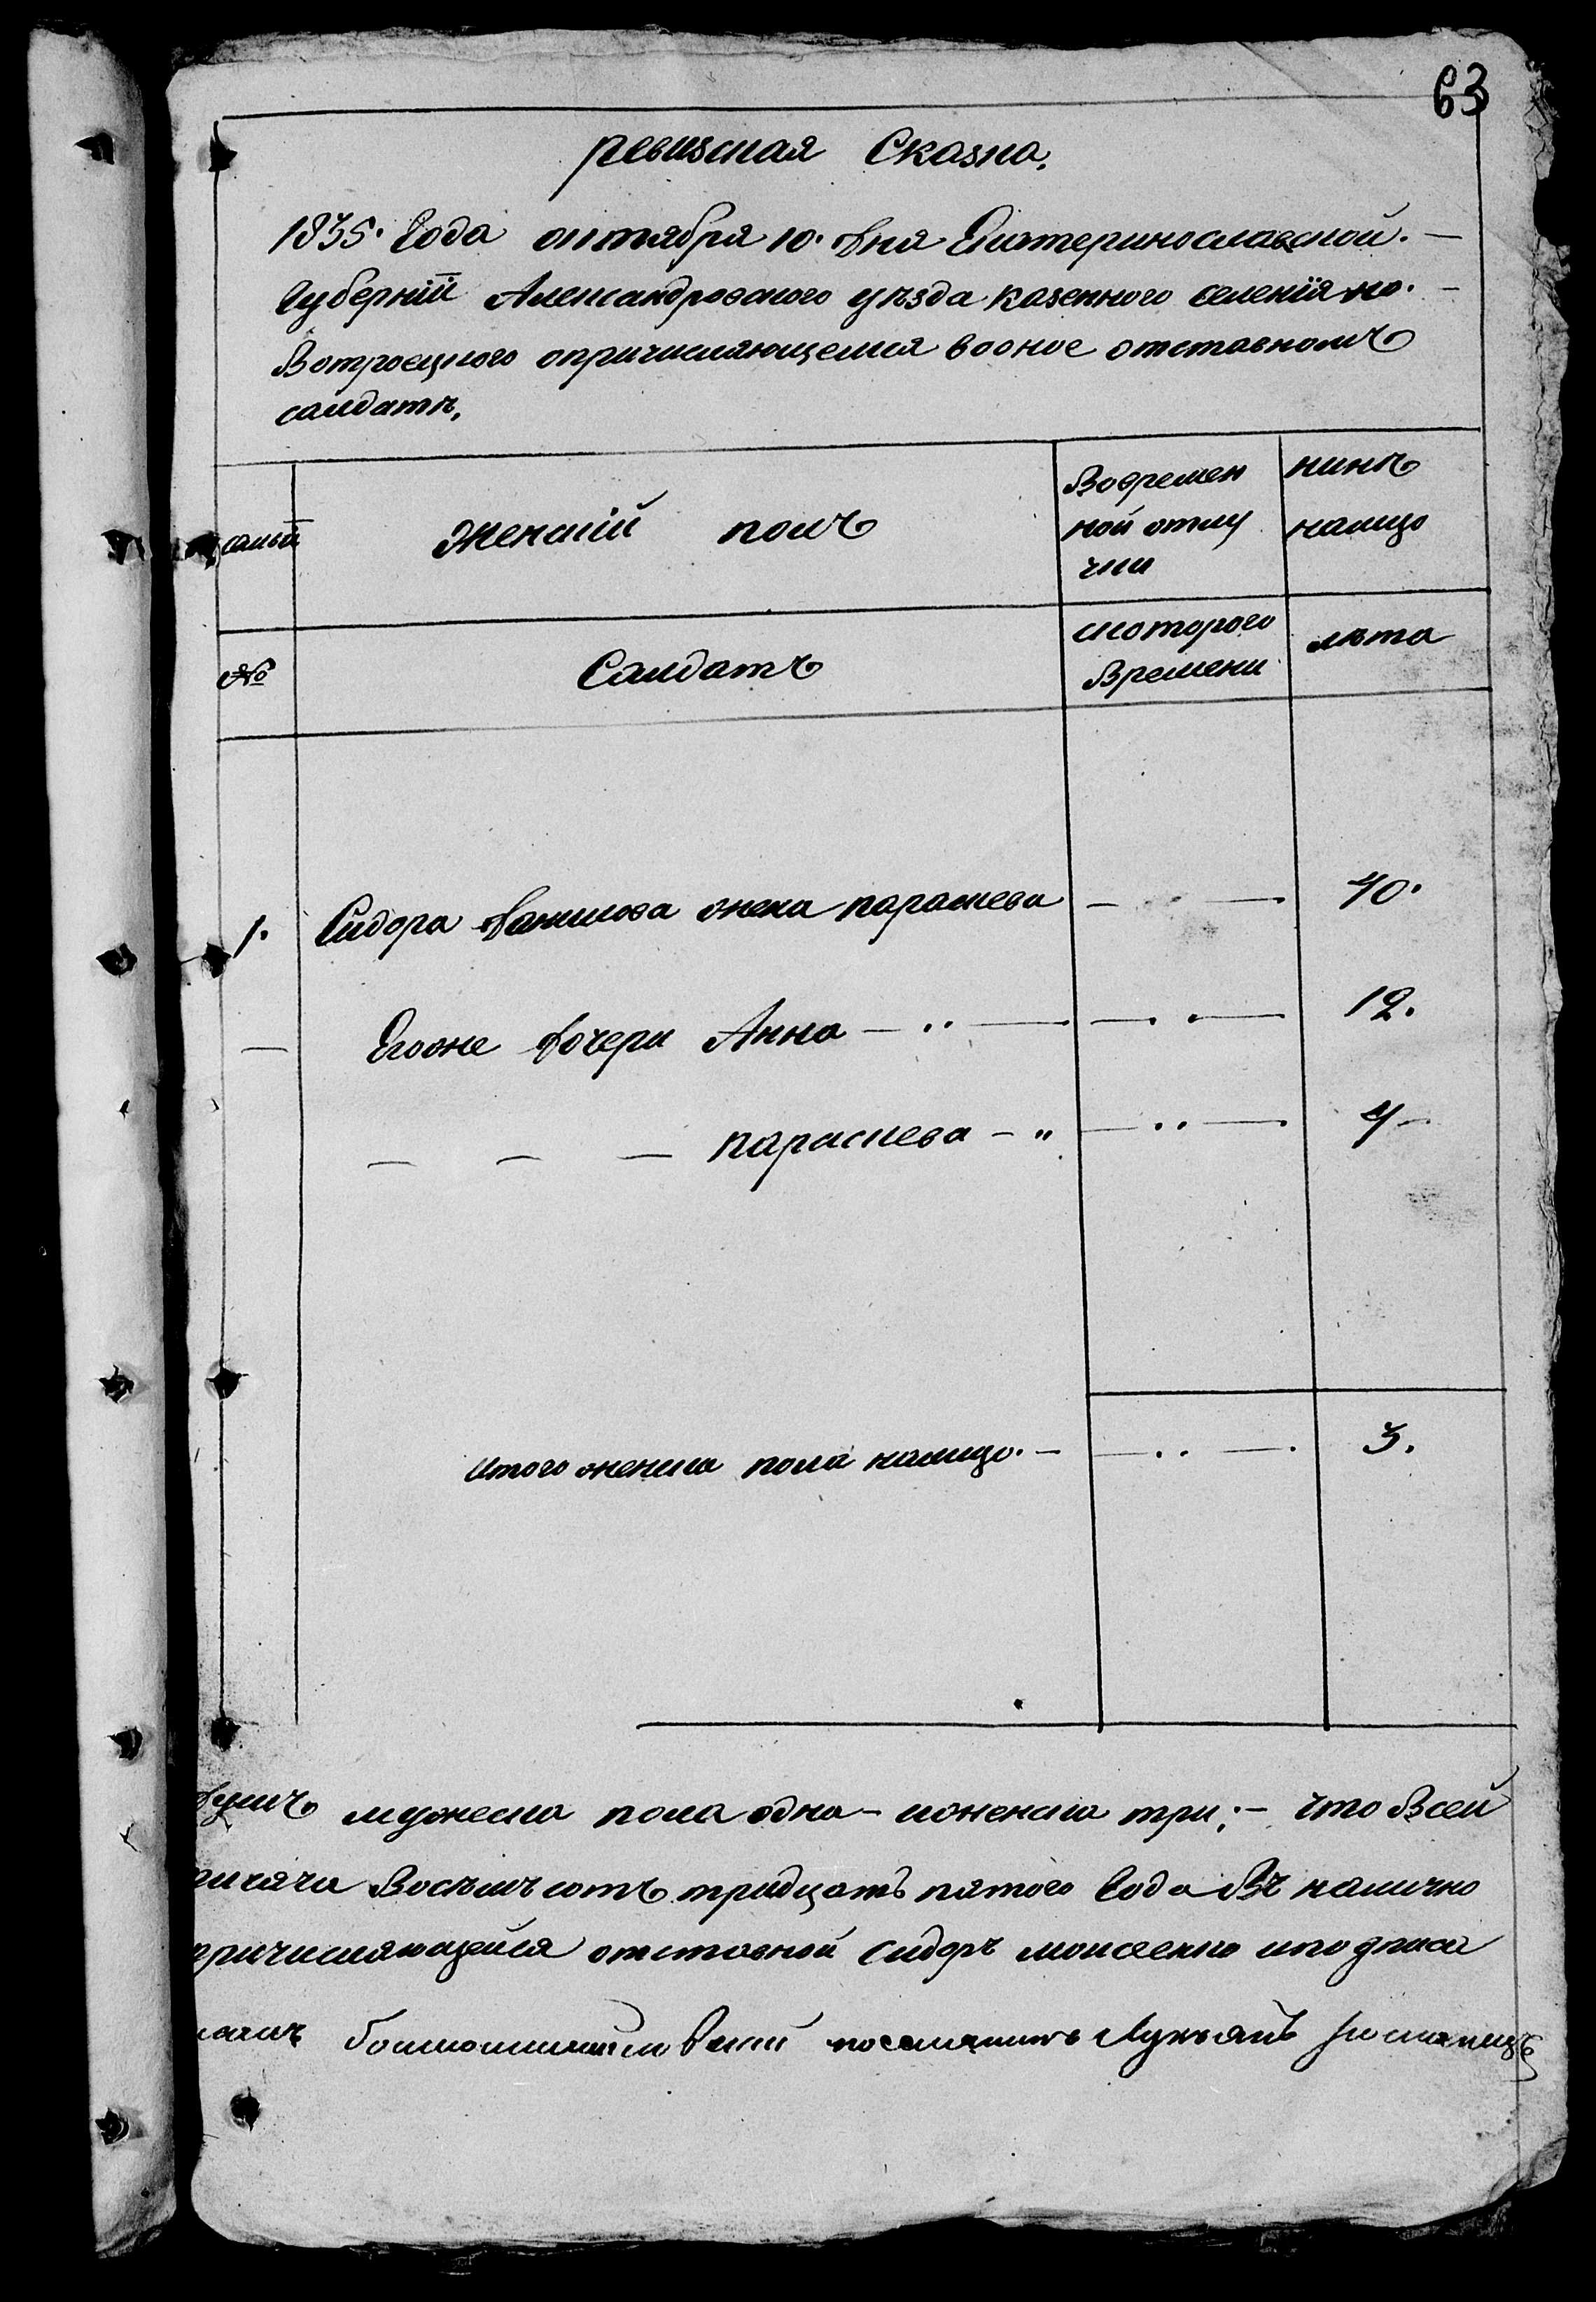 63
ревизская Сказка.
1835. Года октября 10. дня Екатеринославской. —
Губерніи Александровского уѣзда казенного селенія но. —
Вотроецкого опричисляющемся воокое отставномъ
салдатѣ.
Женскій полъ
Вовремен
ной отлу
чки
нинѣ
налицо
№
Салдатъ
скоторого
Времени
лѣта
1. Сидора Данилова жена параскева — — 40.
— Егоже дочери Анна — .. — — . . — 12.
— — — параскева — " — .. — 4 —
Итого женска пола налицо. — — .. — . 3.
душъ мужеска пола одна — иженска три; — что Всей
тысяча Восѣмъ сотъ тридцать пятого Года Въ налично
причисляющейся отставной Сидоръ моисеенко иподписа
поселянинъ Лукьянъ